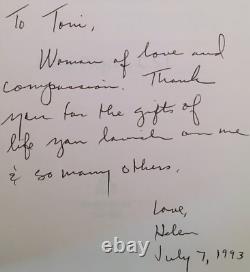 To Toni,
Woman of love and
compassion. Thank
you for the gifts of
life you lavish on me
& so many others.
Love,
Helen
July 7, 1993
ebay